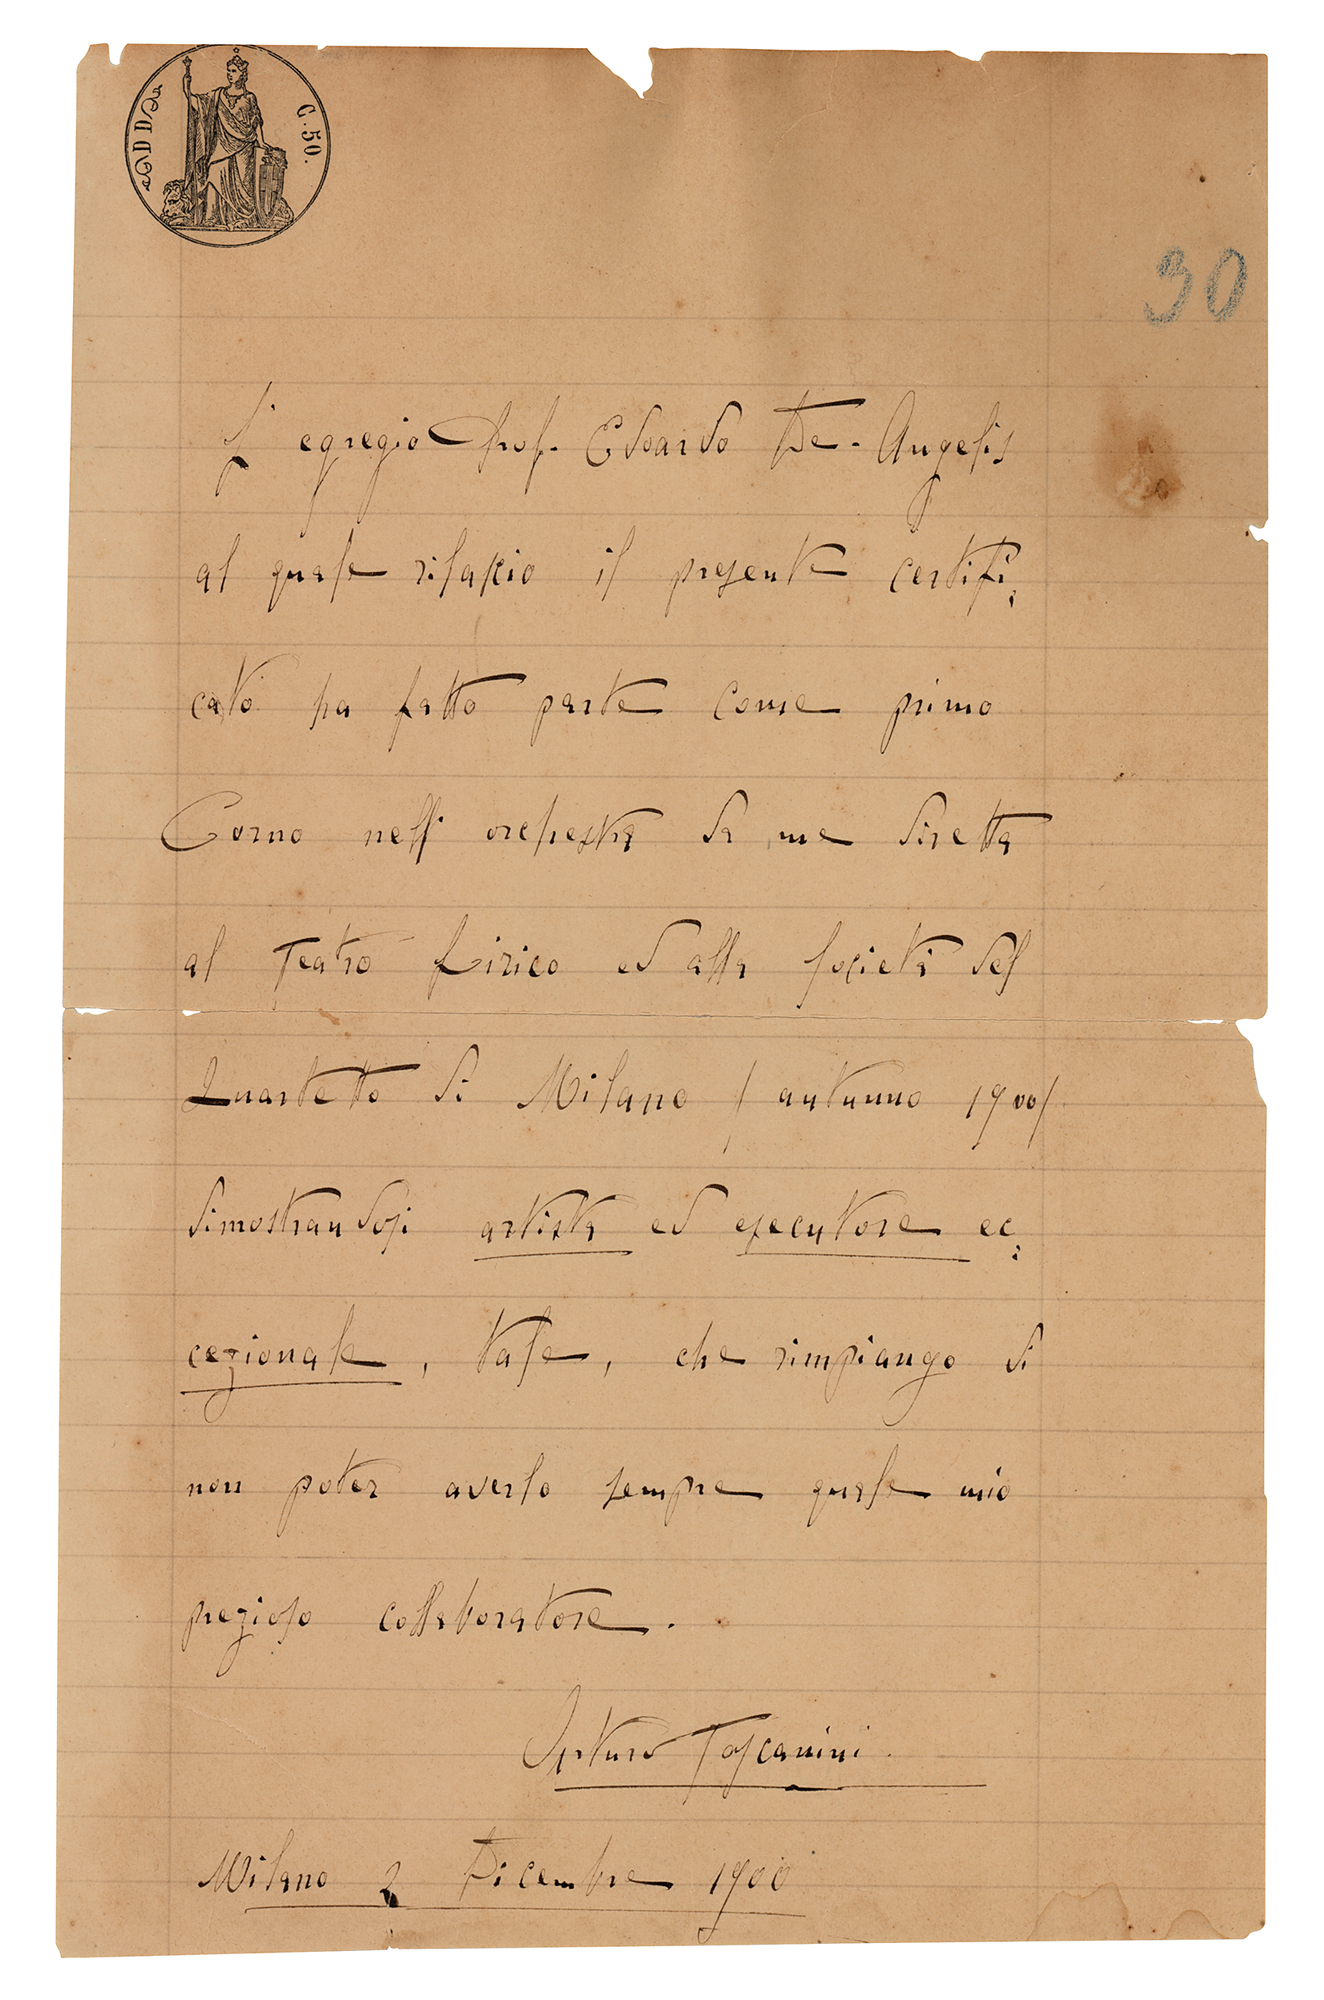 C. 50.
DD
30
L' egregio Prof. Edoardo De-Angelis
al quale rilascio il presente certifi:
cato ha fatto parte come primo
Corno nell' orchestra da me diretta
al Teatro Lirico ed alla Società del
Quartetto di Milano / autunno 1900/
dimostrandosi artista ed esecutore ec:
cezionale, tale, che rimpiango di
non poter averlo sempre quale mio
prezioso collaboratore.
Arturo Toscanini.
Milano 2 Dicembre 1900